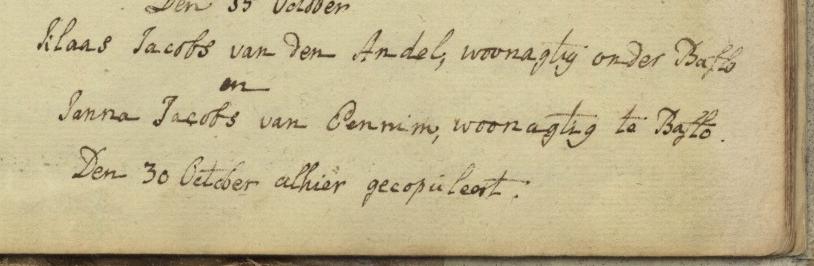 Den 15 October
Klaas Jacobs van den Andel, woonagtig onder Baflo
en
Janna Jacobs van Pennim, woonagtig te Baflo.
Den 30 October alhier gecopuleert.